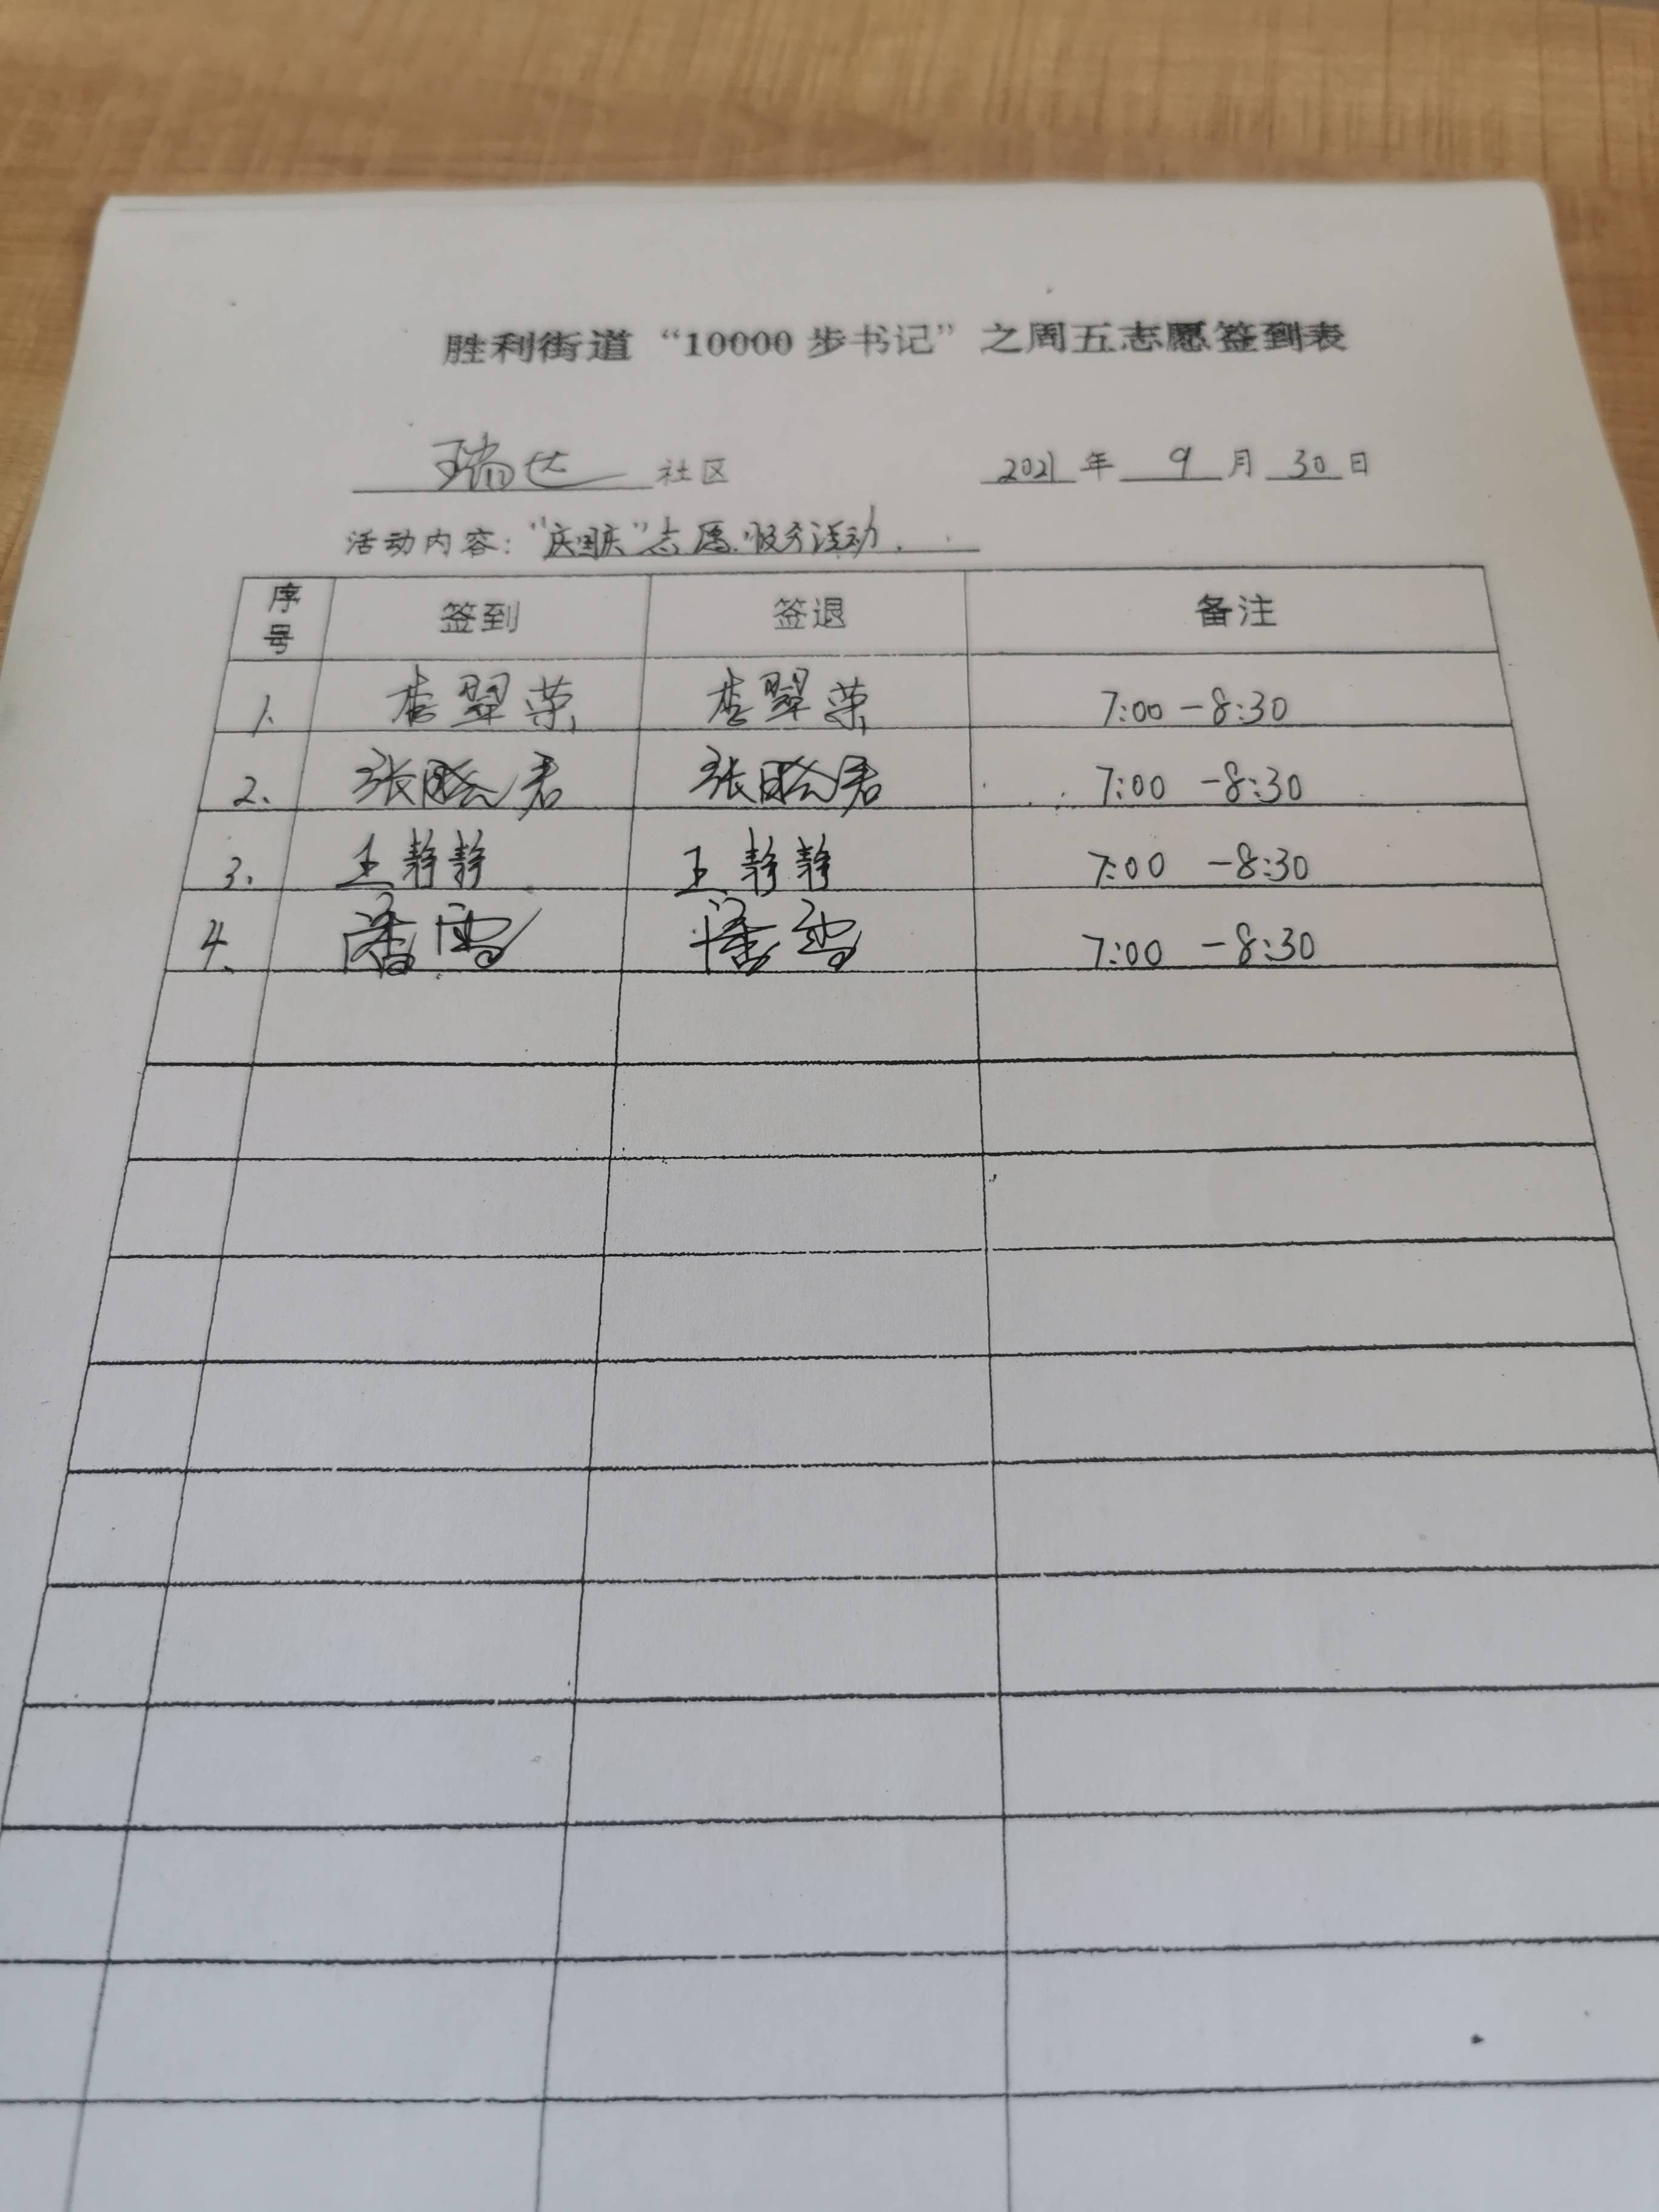 胜利街道“10000步书记”之周五志愿签到表
瑞达社区 2021年9月30日
活动内容：“庆国庆”志愿服务活动.
序号 签到 签退 备注
1. 李翠荣 李翠荣 7:00-8:30
2. 张晓君 张晓君 7:00-8:30
3. 王静静 王静静 7:00-8:30
4. 潘雪 潘雪 7:00-8:30